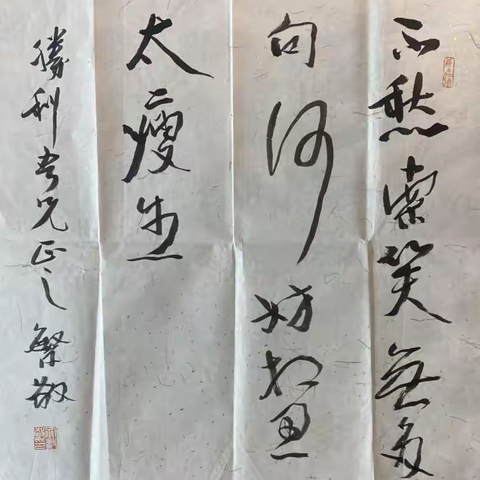 不愁索笑無多
句何妨相思
太瘦生
勝利兄正之 繁敬